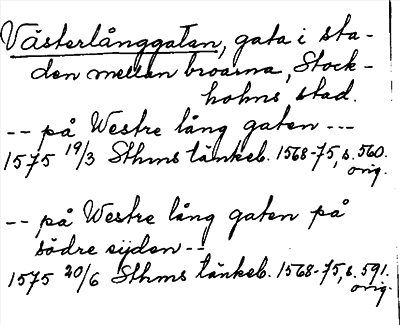 Västerlånggatan, gata i sta-
den mellan broarna, Stock-
holms stad.
-- på Westre lång gaten ---
1575 19/3 Sthms tänkeb. 1568-75, s. 560.
orig.
-- på Westre lång gaten på
södre sijden --
1575 20/6 Sthms tänkeb. 1568-75, s. 591.
orig.